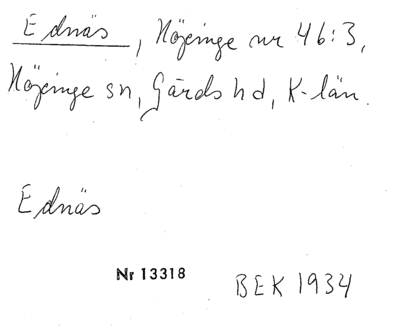 Ednäs, Nöjeinge nr 46:3,
Nöjeinge sn, Gärds hd, K-län.
Ednäs
Nr 13318
BEK 1934